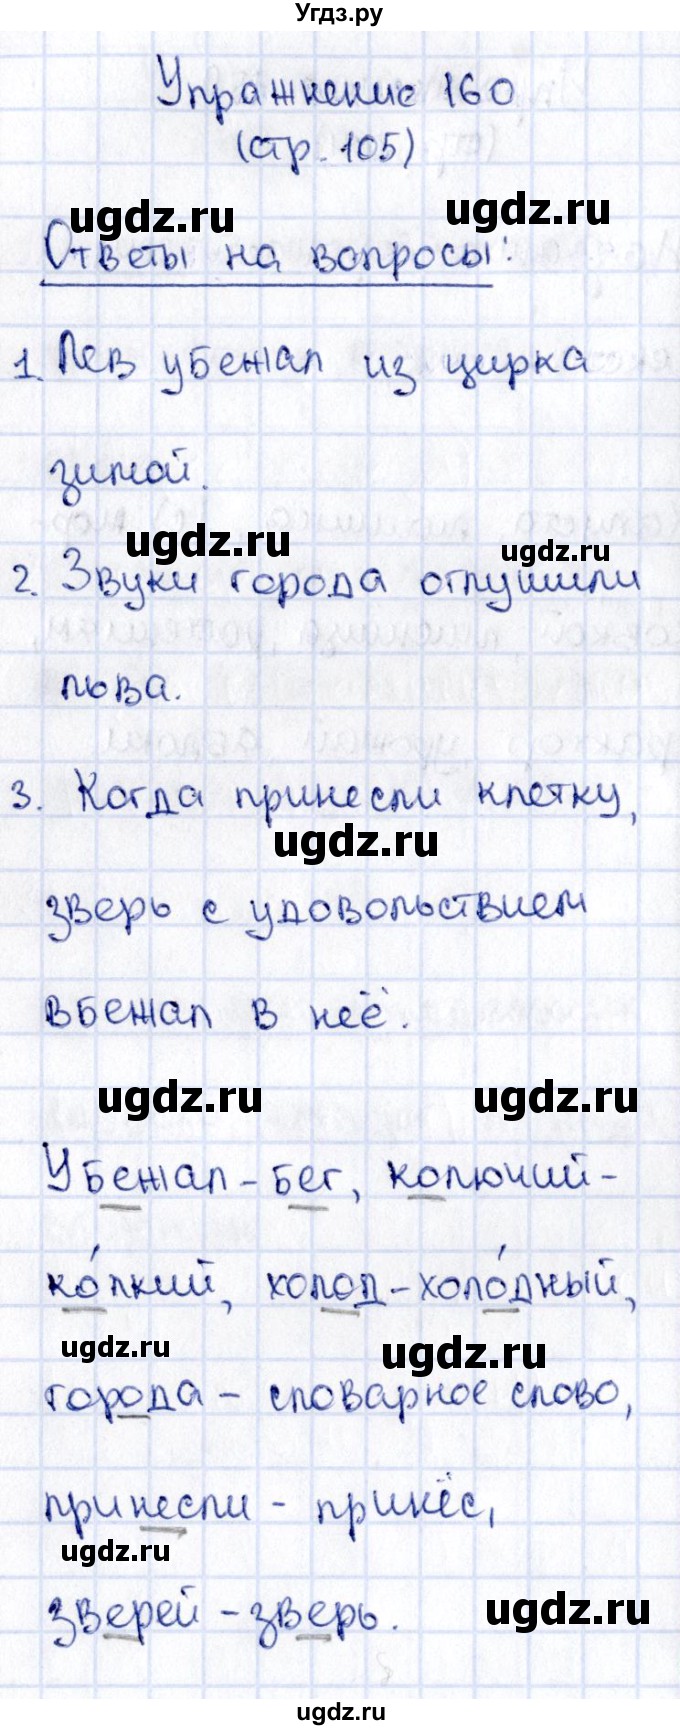 Угдз.ру
Упражнение 160
(стр. 105)
ugdz.ru
ugdz.ru
Ответы на вопросы:
1. Лев убежал из цирка
зимой.
ugdz.ru
ugdz.ru
2. Звуки города оглушили
льва.
3. Когда принесли клетку,
ugdz.ru
зверь с удовольствием
вбежал в неё.
ugdz.ru
ugdz.ru
Убежал - бег, колючий -
ко́лкий, холод - холо́дный,
ugdz.ru
ugdz.ru
города - словарное слово,
принесли - принёс,
ugdz.ru
зверей - зверь.
ugdz.ru
ugdz.ru